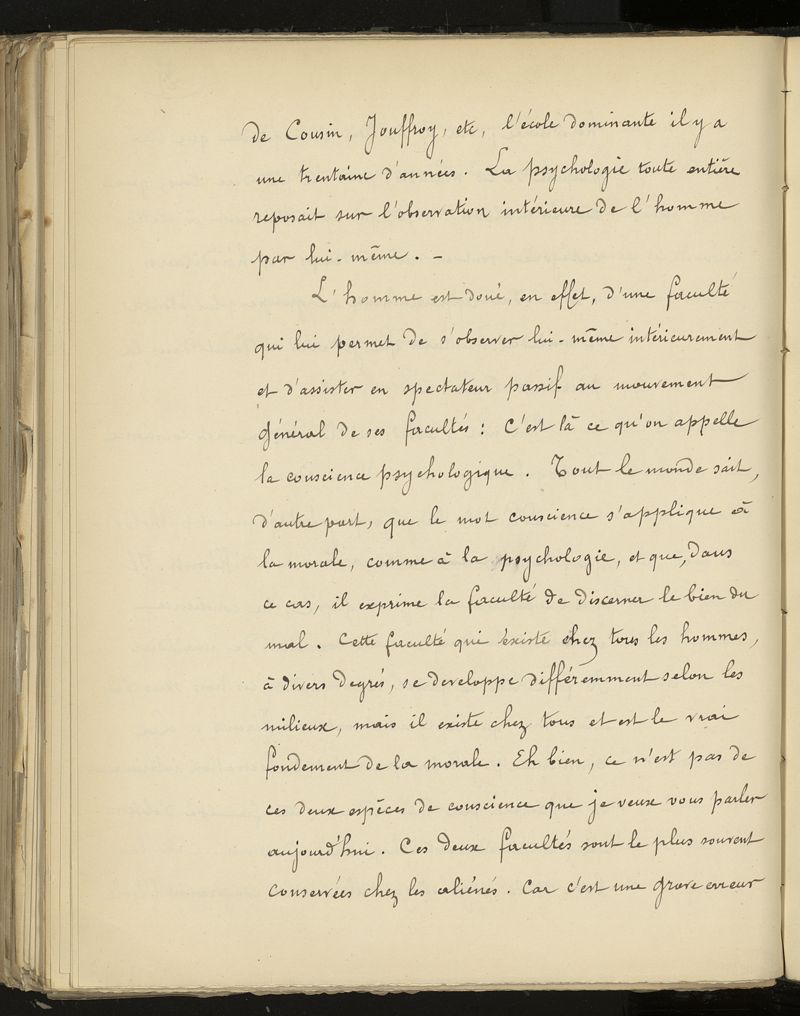 de Cousin, Jouffroy, etc, l'école dominante il y a
une trentaine d'années. La psychologie toute entière
reposait sur l'observation intérieure de l'homme
par lui-même. -
L'homme est doué, en effet, d'une faculté
qui lui permet de s'observer lui-même intérieurement
et d'assister en spectateur passif au mouvement
général de ses facultés : C'est là ce qu'on appelle
la conscience psychologique. Tout le monde sait,
d'autre part, que le mot conscience s'applique à
la morale, comme à la psychologie, et que, dans
ce cas, il exprime la faculté de discerner le bien du
mal. Cette faculté qui existe chez tous les hommes,
à divers degrés, se developpe différemment selon les
milieux, mais il existe chez tous et est le vrai
fondement de la morale. Eh bien, ce n'est pas de
ces deux espèces de conscience que je veux vous parler
aujourd'hui. Ces deux facultés sont le plus souvent
conservées chez les aliénés. Car c'est une grave erreur